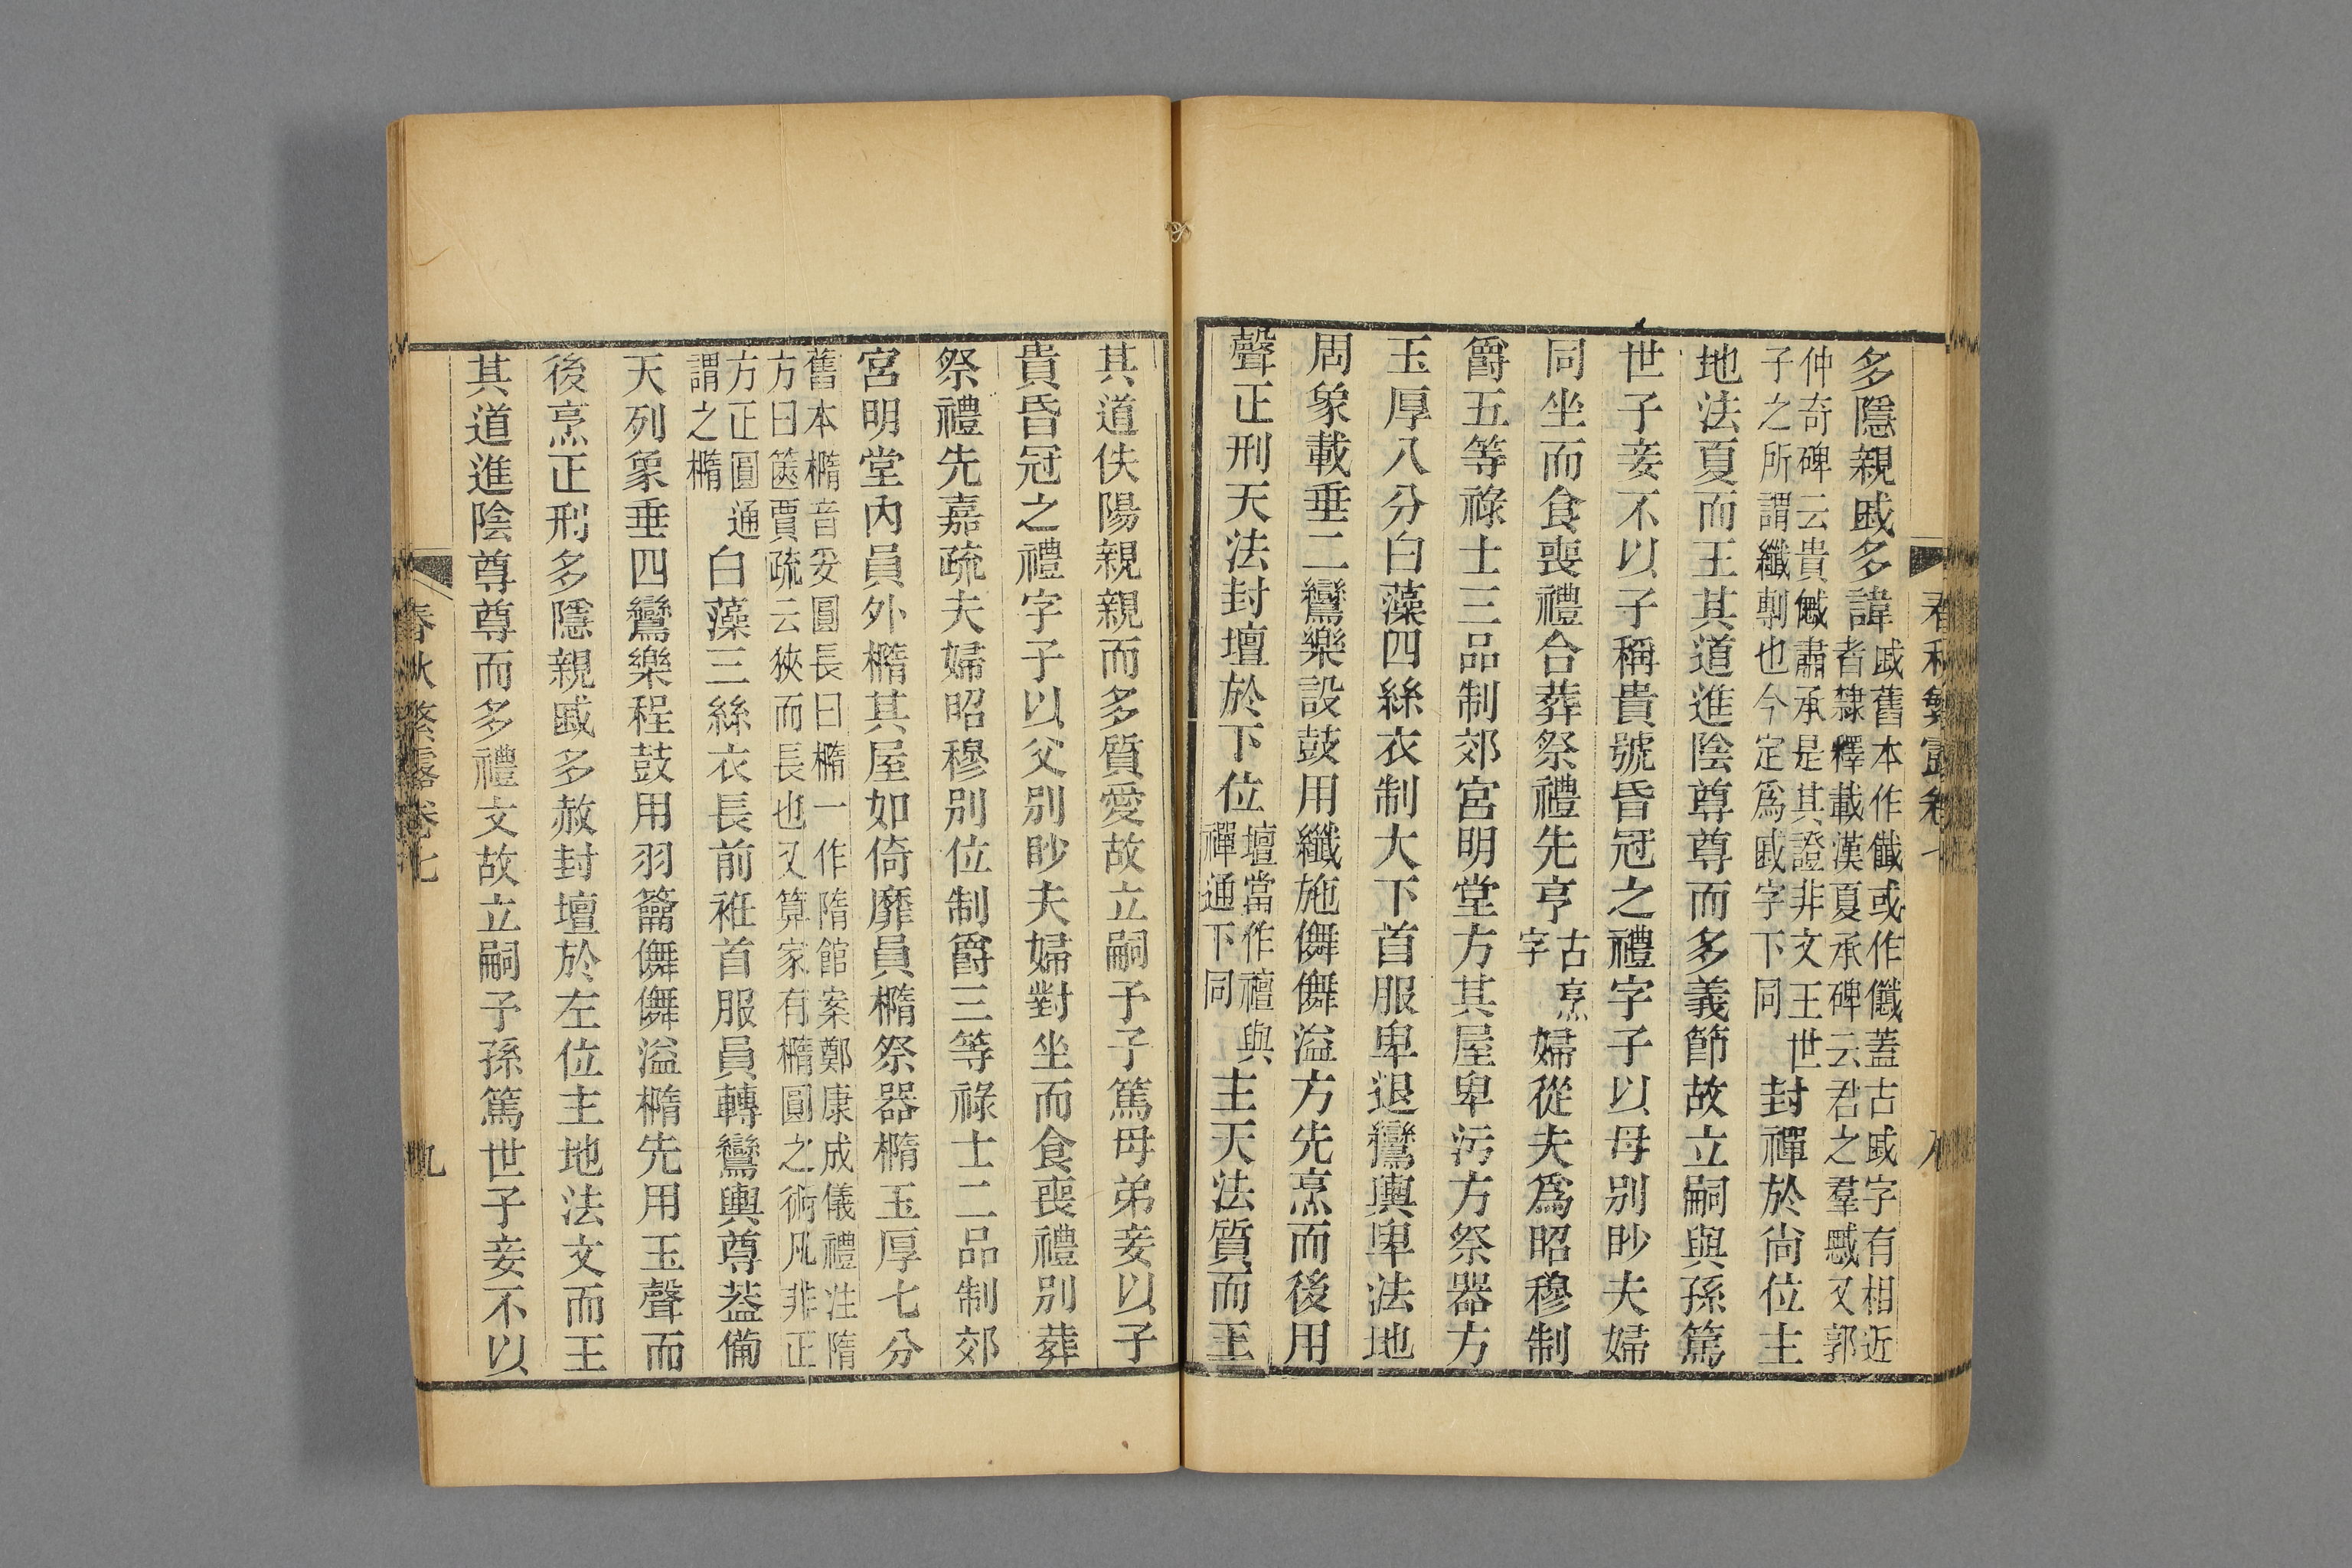 春秋繁露卷七 八
多隱親戚多諱戚舊本作或作蓋古戚字有相近者隸釋載漢夏承碑云君之羣慼又郭
仲奇碑云貴慽肅承是其證非文王世子之所謂纖剸也今定爲戚字下同封禪於尙位主
地法夏而王其道進陰尊尊而多義節故立嗣與孫篤
世子妾不以子稱貴號昏冠之禮字子以母別眇夫婦
同坐而食喪禮合葬祭禮先亨古烹字婦從夫爲昭穆制
爵五等祿士三品制郊宮明堂方其屋卑污方祭器方
玉厚八分白藻四絲衣制大下首服卑退鸞輿卑法地
周象載垂二鸞樂設鼓用纖施儛儛溢方先烹而後用
聲正刑天法封壇於下位壇當作禪與禪通下同主天法質而王
其道佚陽親親而多質愛故立嗣予子篤母弟妾以子
貴昏冠之禮字子以父別眇夫婦對坐而食喪禮別葬
祭禮先嘉疏夫婦昭穆別位制爵三等祿士二品制郊
宮明堂內員外橢其屋如倚靡員橢祭器橢玉厚七分
舊本橢音妥圓長曰橢一作隋館案鄭康成儀禮注隋方曰篋賈疏云狹而長也又算家有橢圓之術凡非正
方正圓通謂之橢白藻三絲衣長前袵首服員轉鸞輿尊葢備
天列象垂四鸞樂程鼓用羽籥儛儛溢橢先用玉聲而
後烹正刑多隱親戚多赦封壇於左位主地法文而王
其道進陰尊尊而多禮文故立嗣予孫篤世子妾不以
春秋繁露卷七 九